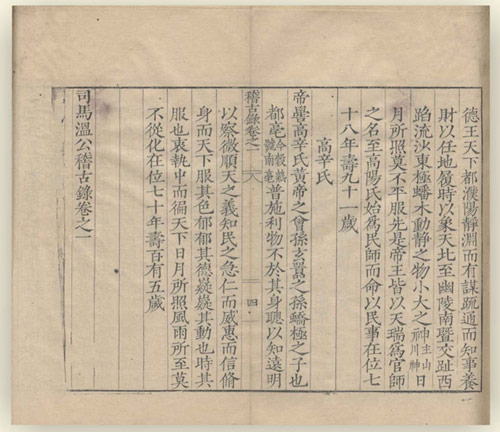 德王天下都濮陽靜淵而有謀疏通而知事養
財以任地履時以象天北至幽陵南暨交趾西
蹈流沙東極蟠木動靜之物小大之神主山川神日
月所照莫不平服先是帝王皆以天瑞爲官師
之名至高陽氏始爲民師而命以民事在位七
十八年壽九十一歲
高辛氏
帝嚳高辛氏黃帝之曾孫玄囂之孫蟜極之子也
都亳今穀熟號南亳普施利物不於其身聰以知遠明
稽古錄卷之一 四
以察微順天之義知民之急仁而威惠而信脩
身而天下服其色郁郁其德嶷嶷其動也時其
服也衷執中而徧天下日月所照風雨所至莫
不從化在位七十年壽百有五歲
司馬溫公稽古錄卷之一